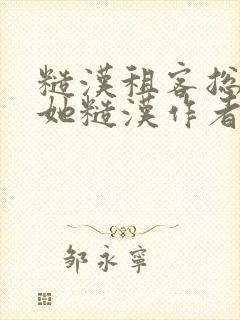 糙漢租客总
她糙漢作者
邹永寧